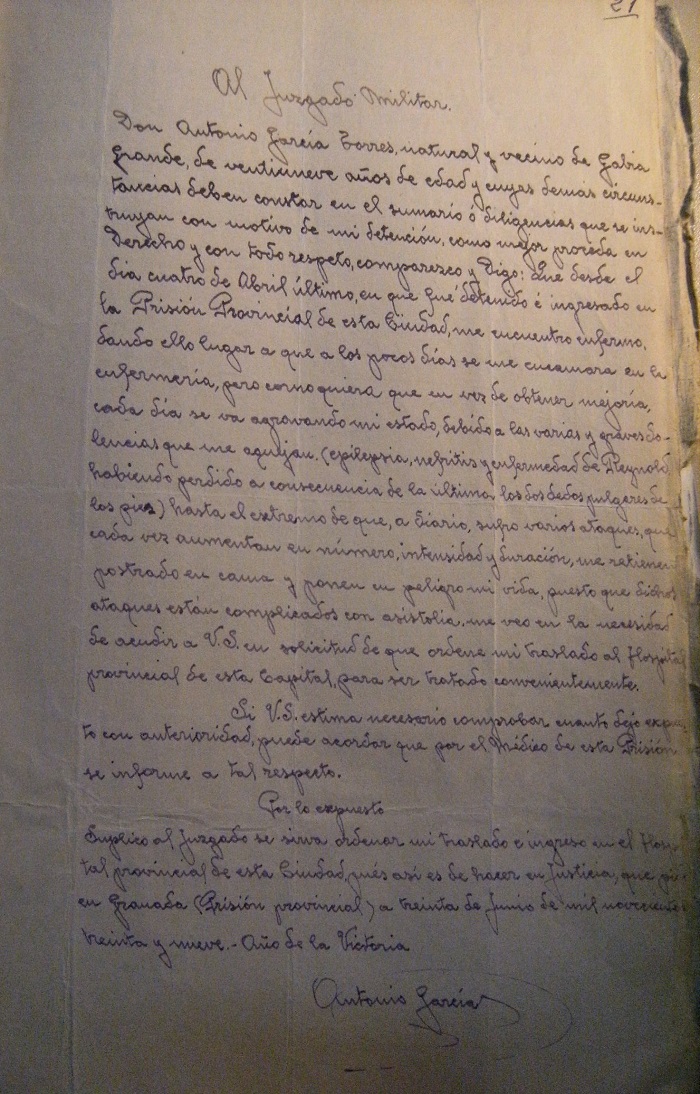 21
Al Juzgado Militar.
Don Antonio García Torres, natural y vecino de Gabia
Grande, de ventinueve años de edad y cuyas demas circuns-
tancias deben constar en el sumario ó diligencias que se ins-
truyan con motivo de mi detención, como mejor proceda en
Derecho y con todo respeto, comparezco y Digo: Que desde el
dia cuatro de Abril último, en que fué detenido é ingresado en
la Prisión Provincial de esta Ciudad, me encuentro enfermo,
dando ello lugar a que a los pocos días se me encamara en la
enfermería, pero como quiera que en vez de obtener mejoría,
cada día se va agravando mi estado, debido a las varias y graves do-
lencias que me aquejan. (epilepsia, nefritis y enfermedad de Reynold,
habiendo perdido a consecuencia de la última los dos dedos pulgeres de
los pies) hasta el extremo de que, a diario, sufro varios ataques, que
cada vez aumentan en número, intensidad y duración, me retienen
postrado en cama y ponen en peligro mi vida, puesto que dichos
ataques están complicados con asistolia, me veo en la necesidad
de acudir a V.S. en solicitud de que ordene mi traslado al Hospital
provincial de esta Capital, para ser tratado convenientemente.
Si V.S. estima necesario comprobar cuanto dejo expues
to con anterioridad, puede acordar que por el Médico de esta Prisión
se informe a tal respecto.
Por lo expuesto
Suplico al Juzgado se sirva ordenar mi traslado e ingreso en el Hospi
tal provincial de esta Ciudad, pués así es de hacer en Justicia, que pi-
en Granada (Prisión provincial) a treinta de Junio de mil novecientos
treinta y nueve.- Año de la Victoria
Antonio García